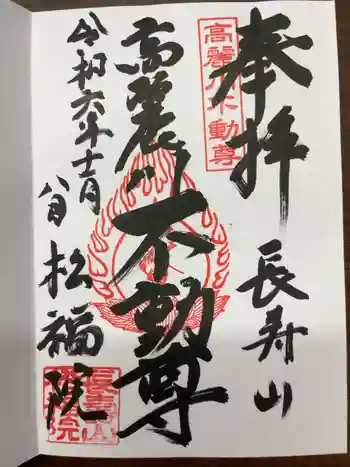 奉拝
長寿山
高麗川不動尊
高麗川不動尊
令和六年十二月
八日
松福院